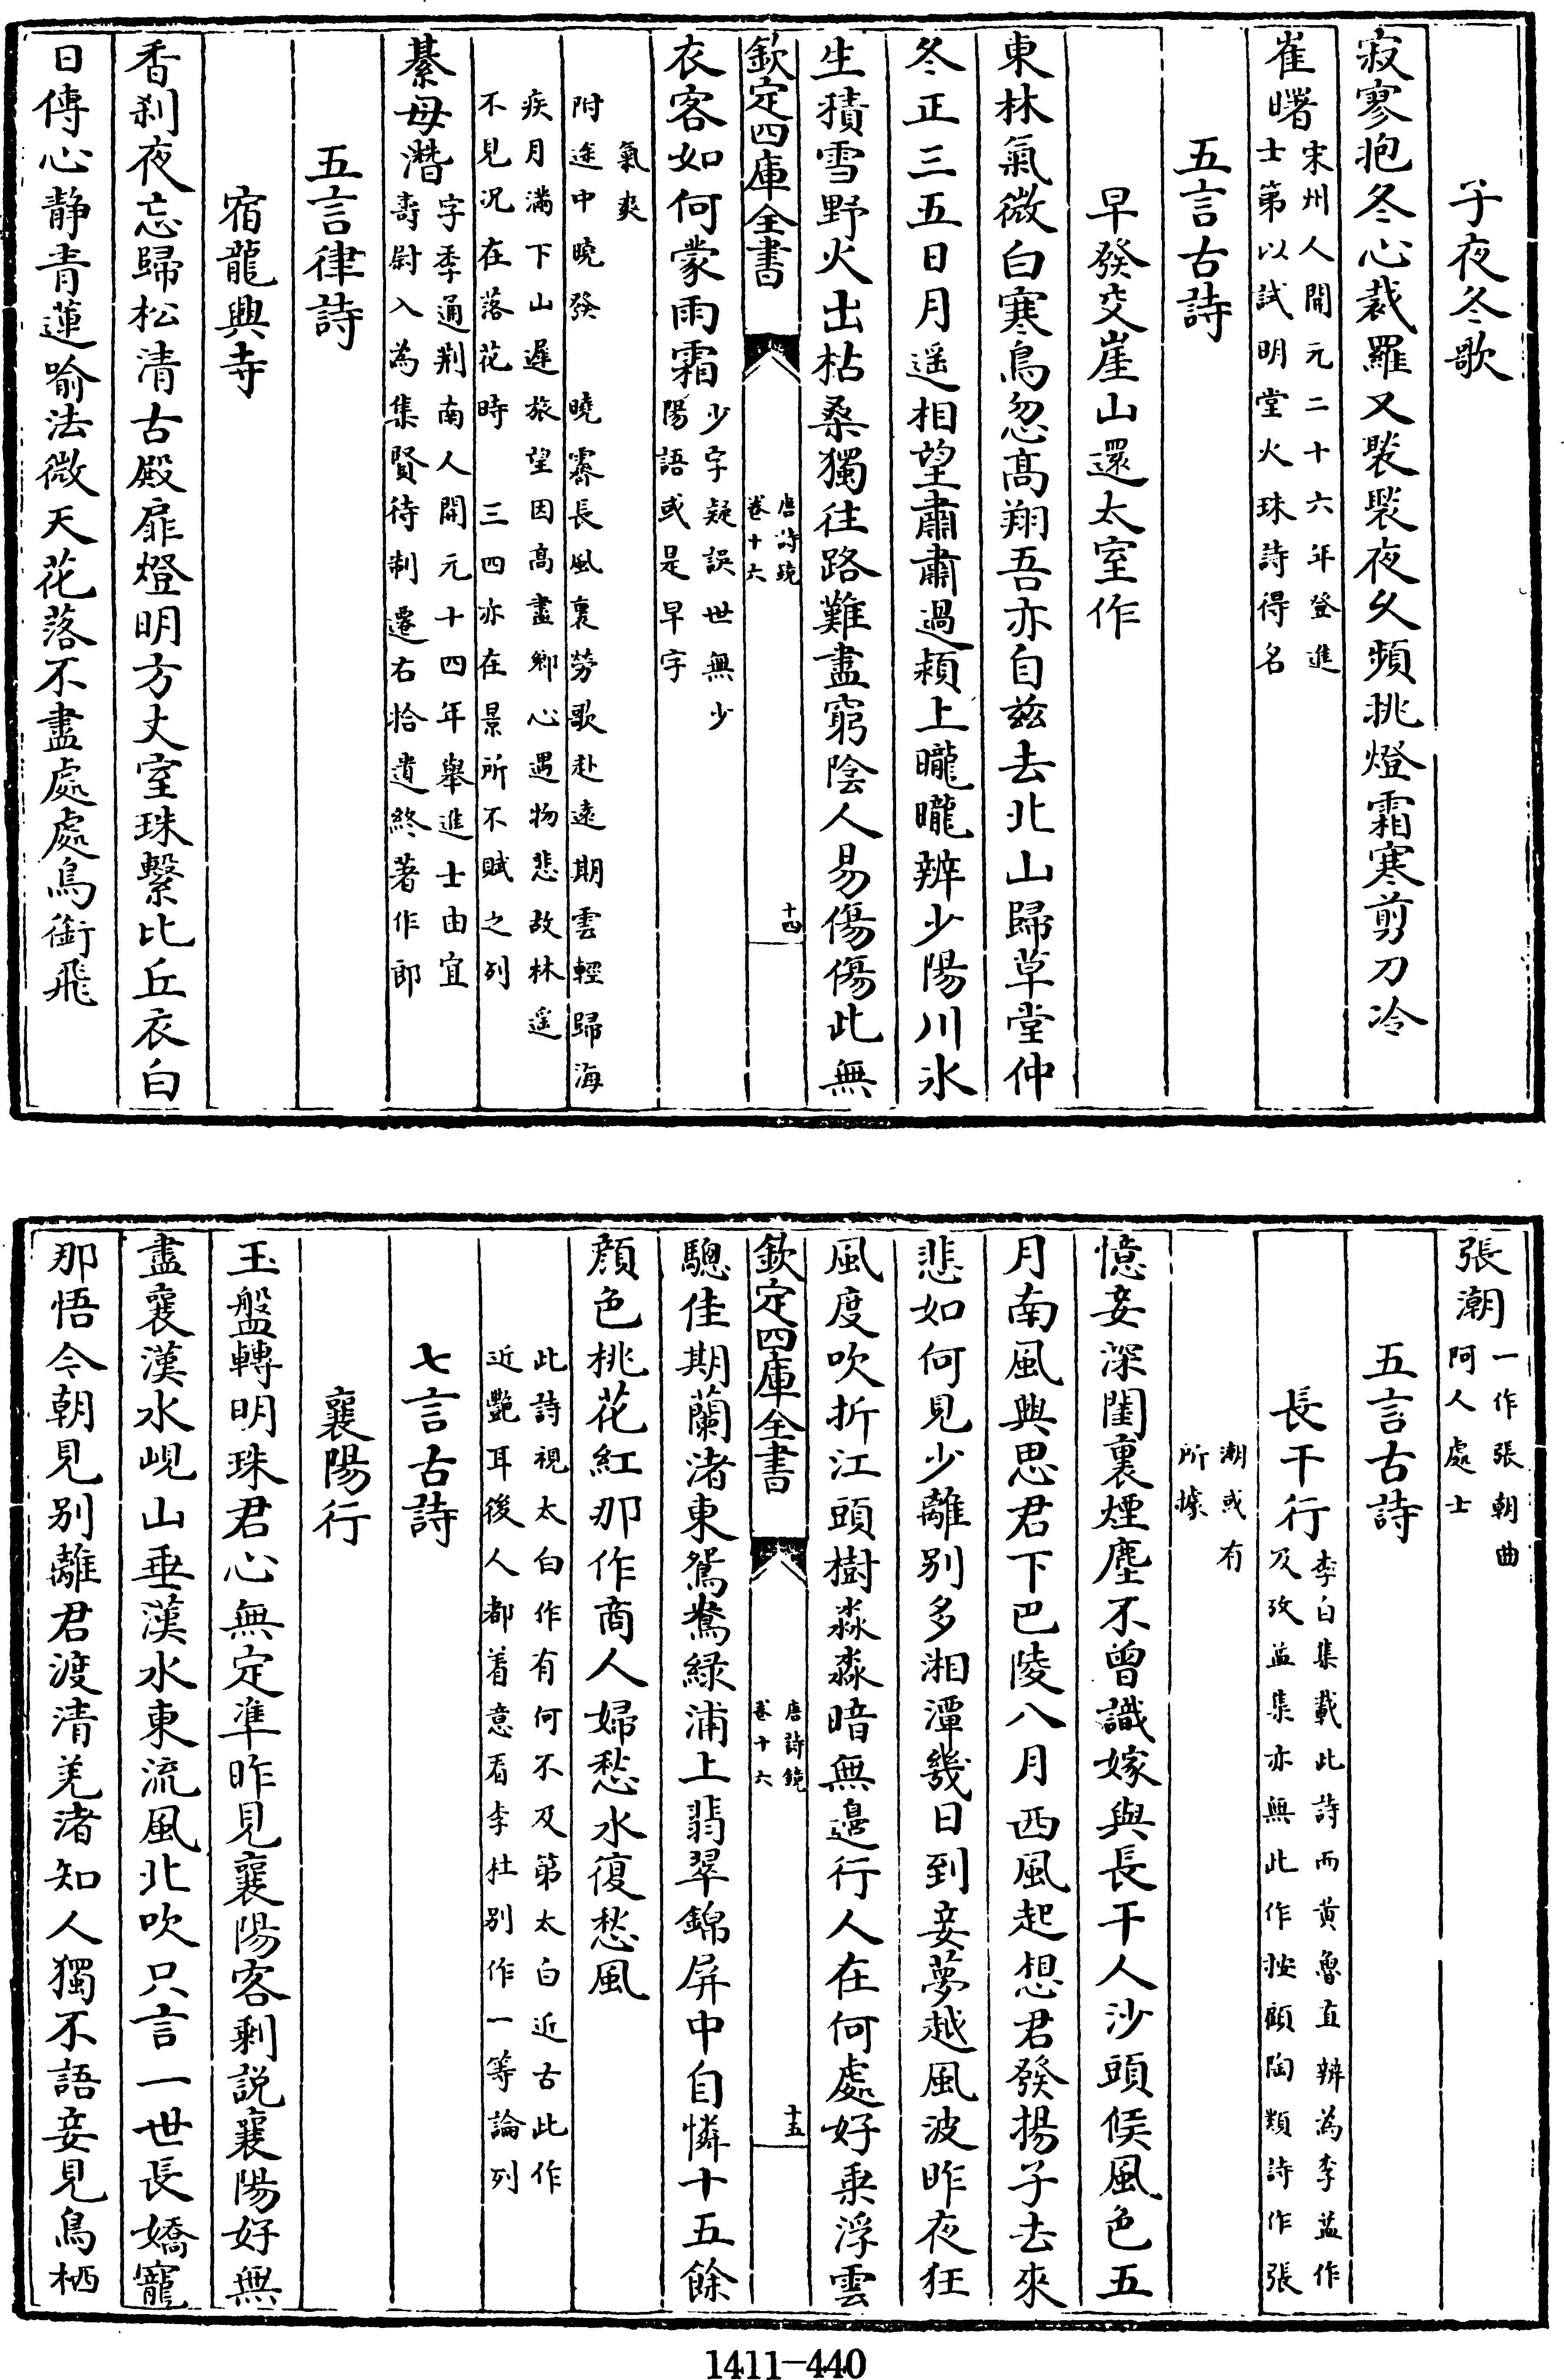 子夜冬歌
寂寥抱冬心裁羅又褧褧夜久頻挑燈霜寒剪刀冷
崔曙宋州人開元二十六年登進
士第以試明堂火珠詩得名
五言古詩
早發交崖山還太室作
東林氣微白寒鳥忽髙翔吾亦自兹去北山歸草堂仲
冬正三五日月遥相望肅肅過潁上曨曨辨少陽川氷
生積雪野火出枯桑獨往路難盡窮陰人易傷傷此無
欽定四庫全書
唐詩鏡
卷十六
十四
衣客如何蒙雨霜少字疑誤世無少
陽語或是早字
氣爽
附途中曉發 曉霽長風裏勞歌赴遠期雲輕歸海
疾月滿下山遲旅望因髙盡鄉心遇物悲故林遥
不見况在落花時 三四亦在景所不賦之列
綦毋潛字季通荆南人開元十四年舉進士由宜
壽尉入為集賢待制遷右拾遺終著作郎
五言律詩
宿龍興寺
香刹夜忘歸松清古殿扉燈明方丈室珠繫比丘衣白
日傳心静青蓮喻法微天花落不盡處處鳥銜飛
張潮一作張朝曲
阿人處士
五言古詩
長干行李白集載此詩而黄魯直辨為李益作
及攷益集亦無此作按顧陶類詩作張
潮或有
所據
憶妾深閨裏煙塵不曾識嫁與長干人沙頭候風色五
月南風興思君下巴陵八月西風起想君發揚子去來
悲如何見少離别多湘潭幾日到妾夢越風波昨夜狂
風度吹折江頭樹淼淼暗無邊行人在何處好乘浮雲
欽定四庫全書
唐詩鏡
卷十六
十五
驄佳期蘭渚東鴛鴦緑浦上翡翠錦屏中自憐十五餘
顔色桃花紅那作商人婦愁水復愁風
此詩視太白作有何不及第太白近古此作
近艷耳後人都着意看李杜别作一等論列
七言古詩
襄陽行
玉盤轉明珠君心無定凖昨見襄陽客剩説襄陽好無
盡襄漢水峴山垂漢水東流風北吹只言一世長嬌寵
那悟今朝見别離君渡清羌渚知人獨不語妾見鳥栖
1411—440